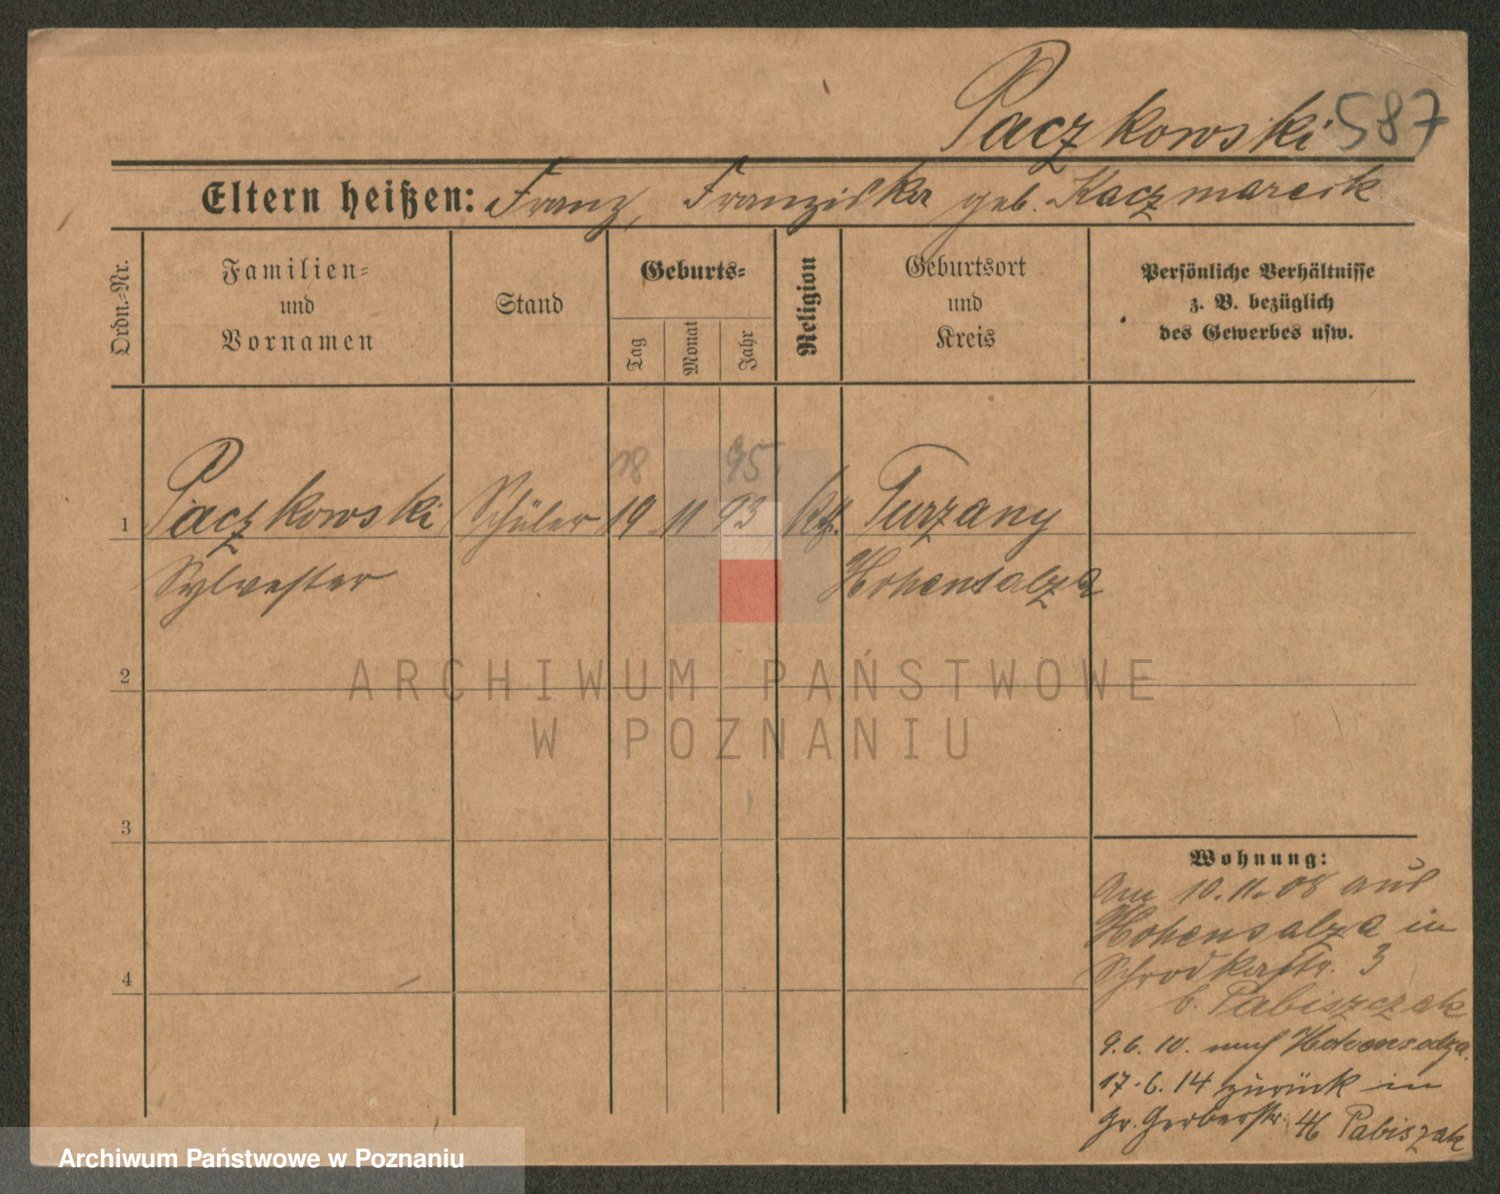 Paczkowski 587
Eltern heißen: Franz, Franziska geb. Kaczmarek
Ordn.-Nr.
Familien-
und
Vornamen
Stand
Geburts-
Tag
Monat
Jahr
Religion
Geburtsort
und
Kreis
Persönliche Verhältnisse
z. B. bezüglich
des Gewerbes usw.
18 95
1 Paczkowski Schüler 19 11 93 kth. Turzany
Sylvester Hohensalza
2
ARCHIWUM PAŃSTWOWE
W POZNANIU
3
4
Wohnung:
Am 10.11.08 aus
Hohensalza in
Schrodkastr. 3
b. Pabiszczak
9.6.10. nach Hohensalza.
17.6.14 zurück in
Gr. Gerberstr. Pabiszak
Archiwum Państwowe w Poznaniu